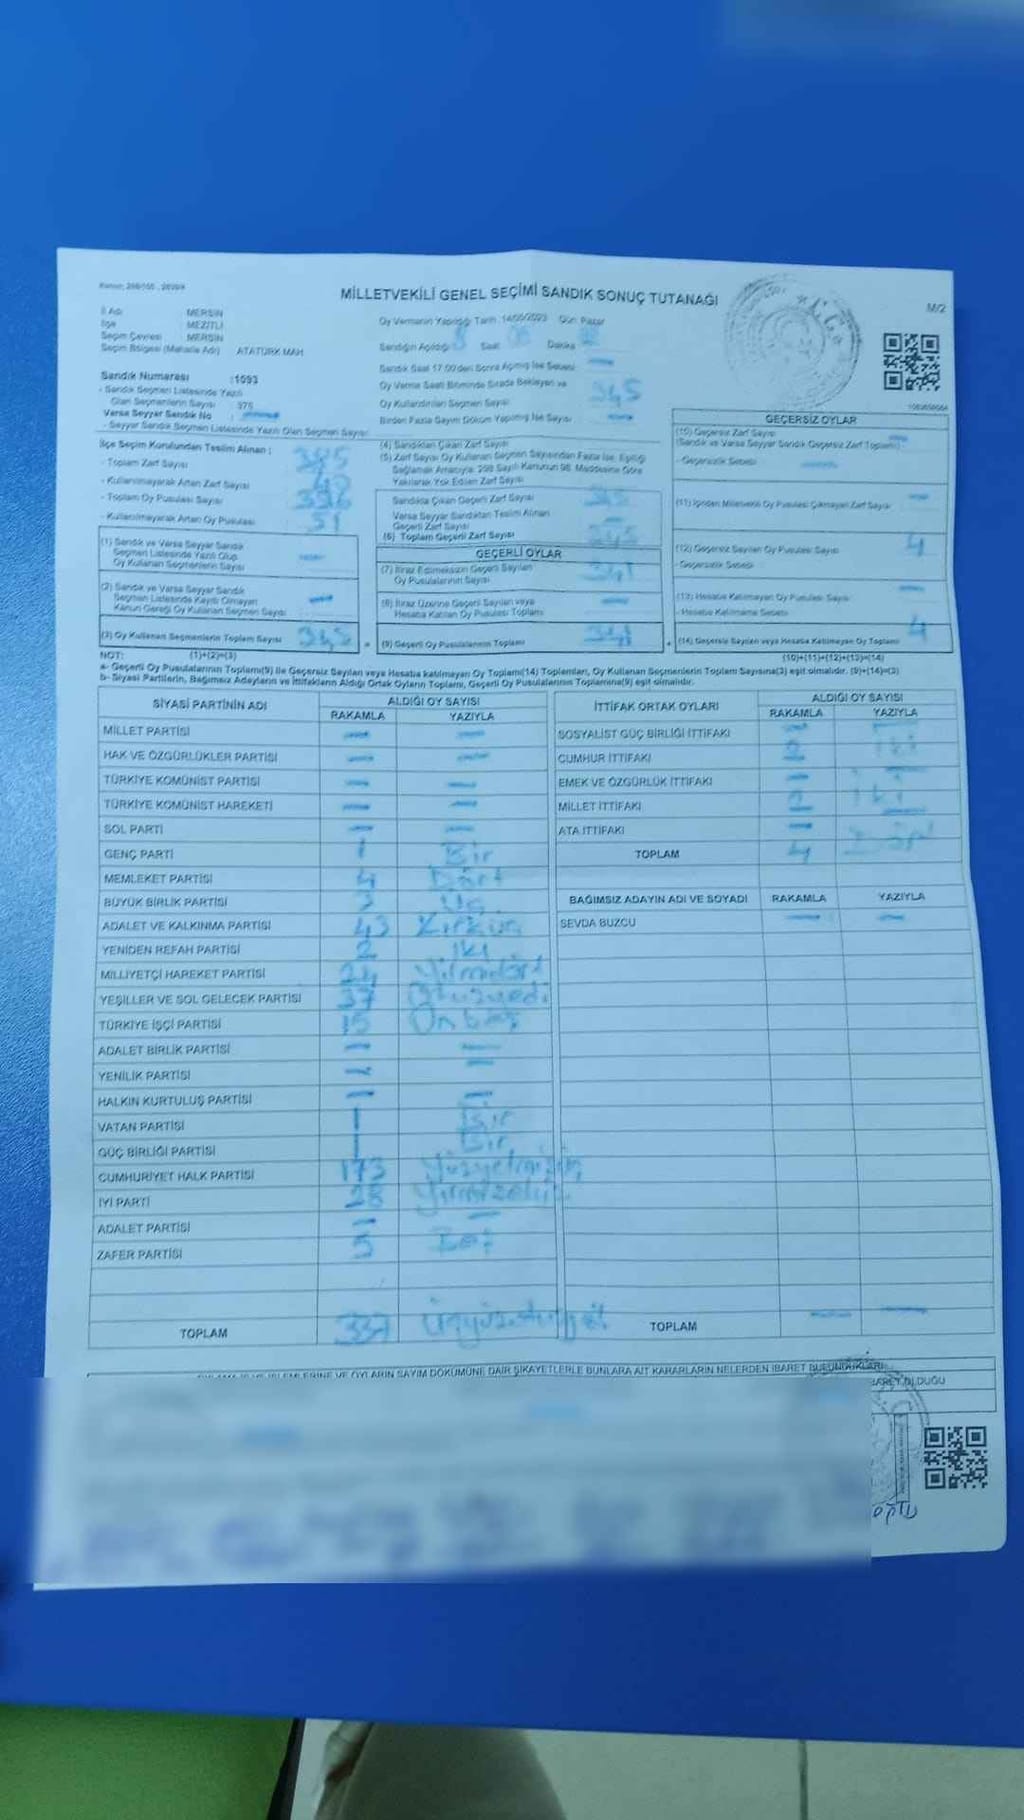 MİLLETVEKİLİ GENEL SEÇİMİ SANDIK SONUÇ TUTANAĞI
M/2
İl Adı MERSİN
İlçe MEZİTLİ
Seçim Çevresi MERSİN
Seçim Bölgesi (Mahalle Adı) ATATÜRK MAH.
Oy Vermenin Yapıldığı Tarih :14/05/2023 Gün: Pazar
Sandığın Açıldığı Saat Dakika
Sandık Saat 17:00'den Sonra Açılmış İse Sebebi
Oy Verme Saati Bitiminde Sırada Bekleyen ve
Oy Kullandırılan Seçmen Sayısı 345
Birden Fazla Sayım Döküm Yapılmış İse Sayısı
Sandık Numarası :1093
- Sandık Seçmen Listesinde Yazılı
Olan Seçmenlerin Sayısı 376
Varsa Seyyar Sandık No :
- Seyyar Sandık Seçmen Listesinde Yazılı Olan Seçmen Sayısı
İlçe Seçim Kurulundan Teslim Alınan :
- Toplam Zarf Sayısı
- Kullanılmayarak Artan Zarf Sayısı
- Toplam Oy Pusulası Sayısı 396
- Kullanılmayarak Artan Oy Pusulası 51
(1) Sandık ve Varsa Seyyar Sandık
Seçmen Listesinde Yazılı Olup
Oy Kullanan Seçmenlerin Sayısı
(2) Sandık ve Varsa Seyyar Sandık
Seçmen Listesinde Kayıtlı Olmayan
Kanun Gereği Oy Kullanan Seçmen Sayısı
(3) Oy Kullanan Seçmenlerin Toplam Sayısı 345
(4) Sandıktan Çıkan Zarf Sayısı
(5) Zarf Sayısı Oy Kullanan Seçmen Sayısından Fazla İse, Eşitliği
Sağlamak Amacıyla, 298 Sayılı Kanunun 98. Maddesine Göre
Yakılarak Yok Edilen Zarf Sayısı
Sandıkta Çıkan Geçerli Zarf Sayısı 345
Varsa Seyyar Sandıktan Teslim Alınan
Geçerli Zarf Sayısı
(6) Toplam Geçerli Zarf Sayısı 345
GEÇERLİ OYLAR
(7) İtiraz Edilmeksizin Geçerli Sayılan
Oy Pusulalarının Sayısı 341
(8) İtiraz Üzerine Geçerli Sayılan veya
Hesaba Katılan Oy Pusulası Toplamı
(9) Geçerli Oy Pusulalarının Toplamı 341
GEÇERSİZ OYLAR
(10) Geçersiz Zarf Sayısı
(Sandık ve Varsa Seyyar Sandık Geçersiz Zarf Toplamı)
- Geçersizlik Sebebi
(11) İçinden Milletvekili Oy Pusulası Çıkmayan Zarf Sayısı
(12) Geçersiz Sayılan Oy Pusulası Sayısı 4
- Geçersizlik Sebebi
(13) Hesaba Katılmayan Oy Pusulası Sayısı
- Hesaba Katılmama Sebebi
(14) Geçersiz Sayılan veya Hesaba Katılmayan Oy Toplamı 4
NOT: (1)+(2)=(3) (10)+(11)+(12)+(13)=(14)
a- Geçerli Oy Pusulalarının Toplamı(9) ile Geçersiz Sayılan veya Hesaba katılmayan Oy Toplamı(14) Toplamları, Oy Kullanan Seçmenlerin Toplam Sayısına(3) eşit olmalıdır. (9)+(14)=(3)
b- Siyasi Partilerin, Bağımsız Adayların ve İttifakların Aldığı Ortak Oyların Toplamı, Geçerli Oy Pusulalarının Toplamına(9) eşit olmalıdır.
SİYASİ PARTİNİN ADI ALDIĞI OY SAYISI
RAKAMLA YAZIYLA
MİLLET PARTİSİ — —
HAK VE ÖZGÜRLÜKLER PARTİSİ — —
TÜRKİYE KOMÜNİST PARTİSİ — —
TÜRKİYE KOMÜNİST HAREKETİ — —
SOL PARTİ — —
GENÇ PARTİ 1 Bir
MEMLEKET PARTİSİ 4 Dört
BÜYÜK BİRLİK PARTİSİ 3 Üç
ADALET VE KALKINMA PARTİSİ 43 Kırküç
YENİDEN REFAH PARTİSİ 2 İki
MİLLİYETÇİ HAREKET PARTİSİ 24
YEŞİLLER VE SOL GELECEK PARTİSİ 37 Otuzyedi
TÜRKİYE İŞÇİ PARTİSİ 15 Onbeş
ADALET BİRLİK PARTİSİ — —
YENİLİK PARTİSİ — —
HALKIN KURTULUŞ PARTİSİ — —
VATAN PARTİSİ 1 Bir
GÜÇ BİRLİĞİ PARTİSİ 1 Bir
CUMHURİYET HALK PARTİSİ 173
İYİ PARTİ 28
ADALET PARTİSİ — —
ZAFER PARTİSİ 5 Beş
TOPLAM 337
İTTİFAK ORTAK OYLARI ALDIĞI OY SAYISI
RAKAMLA YAZIYLA
SOSYALİST GÜÇ BİRLİĞİ İTTİFAKI — —
CUMHUR İTTİFAKI 2 İki
EMEK VE ÖZGÜRLÜK İTTİFAKI — —
MİLLET İTTİFAKI 2 İki
ATA İTTİFAKI — —
TOPLAM 4 Dört
BAĞIMSIZ ADAYIN ADI VE SOYADI RAKAMLA YAZIYLA
SEVDA BUZCU — —
TOPLAM — —
OYLARIN SAYIM DÖKÜMÜNE DAİR ŞİKAYETLERLE BUNLARA AİT KARARLARIN NELERDEN İBARET BULUNDUKLARI